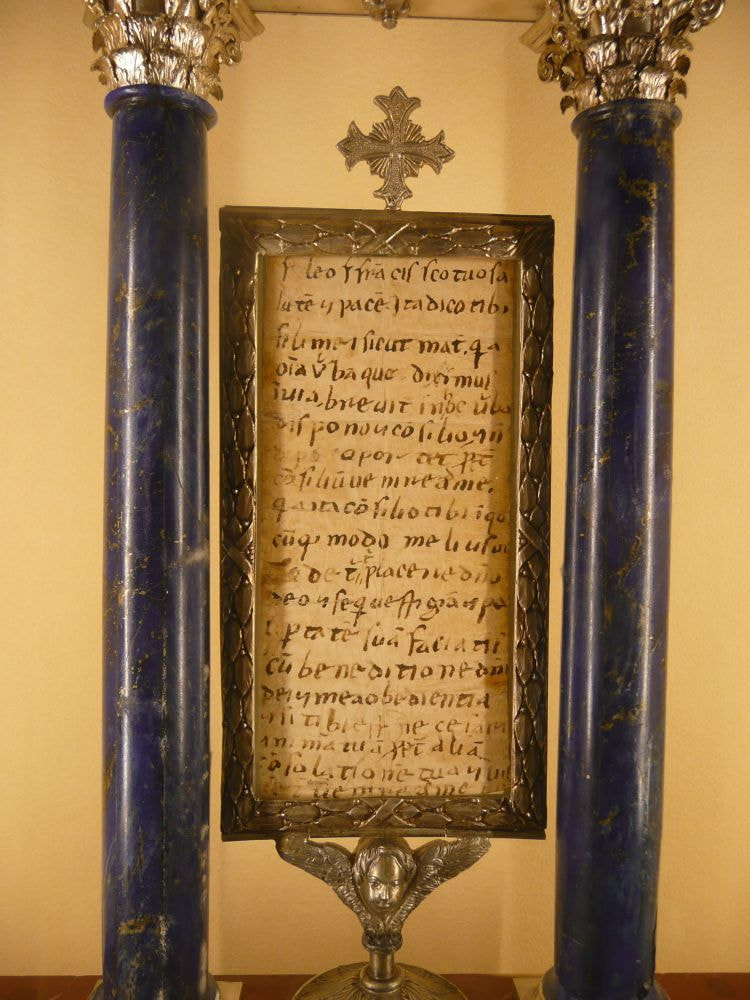 f leo f frācis ſco tuo sa
lutē ⁊ pacē Ita dico tibi
fili me⁊ sicut mat. q̄ a
oīa v̄ba que diximus
ī uia, breuit̄ in hoc ūbo
dispono ⁊ cōsilio ⁊ n̄
oportet ꝓpt̄
cōsiliū uenire ad me.
q̄a ita cōsilio tibi ī q̊
cūq; modo melius
de t̄ placere dño
deo ⁊ seq̄ ueſtigiā ⁊ pa
uptatē suā faciatis
cū beneditione dñi
dei ⁊ mea obediētia
⁊ si tibi necesariū
animā tuā ꝓpt̄ aliā
cōsolatione tuā ⁊ uis
uenire ad me